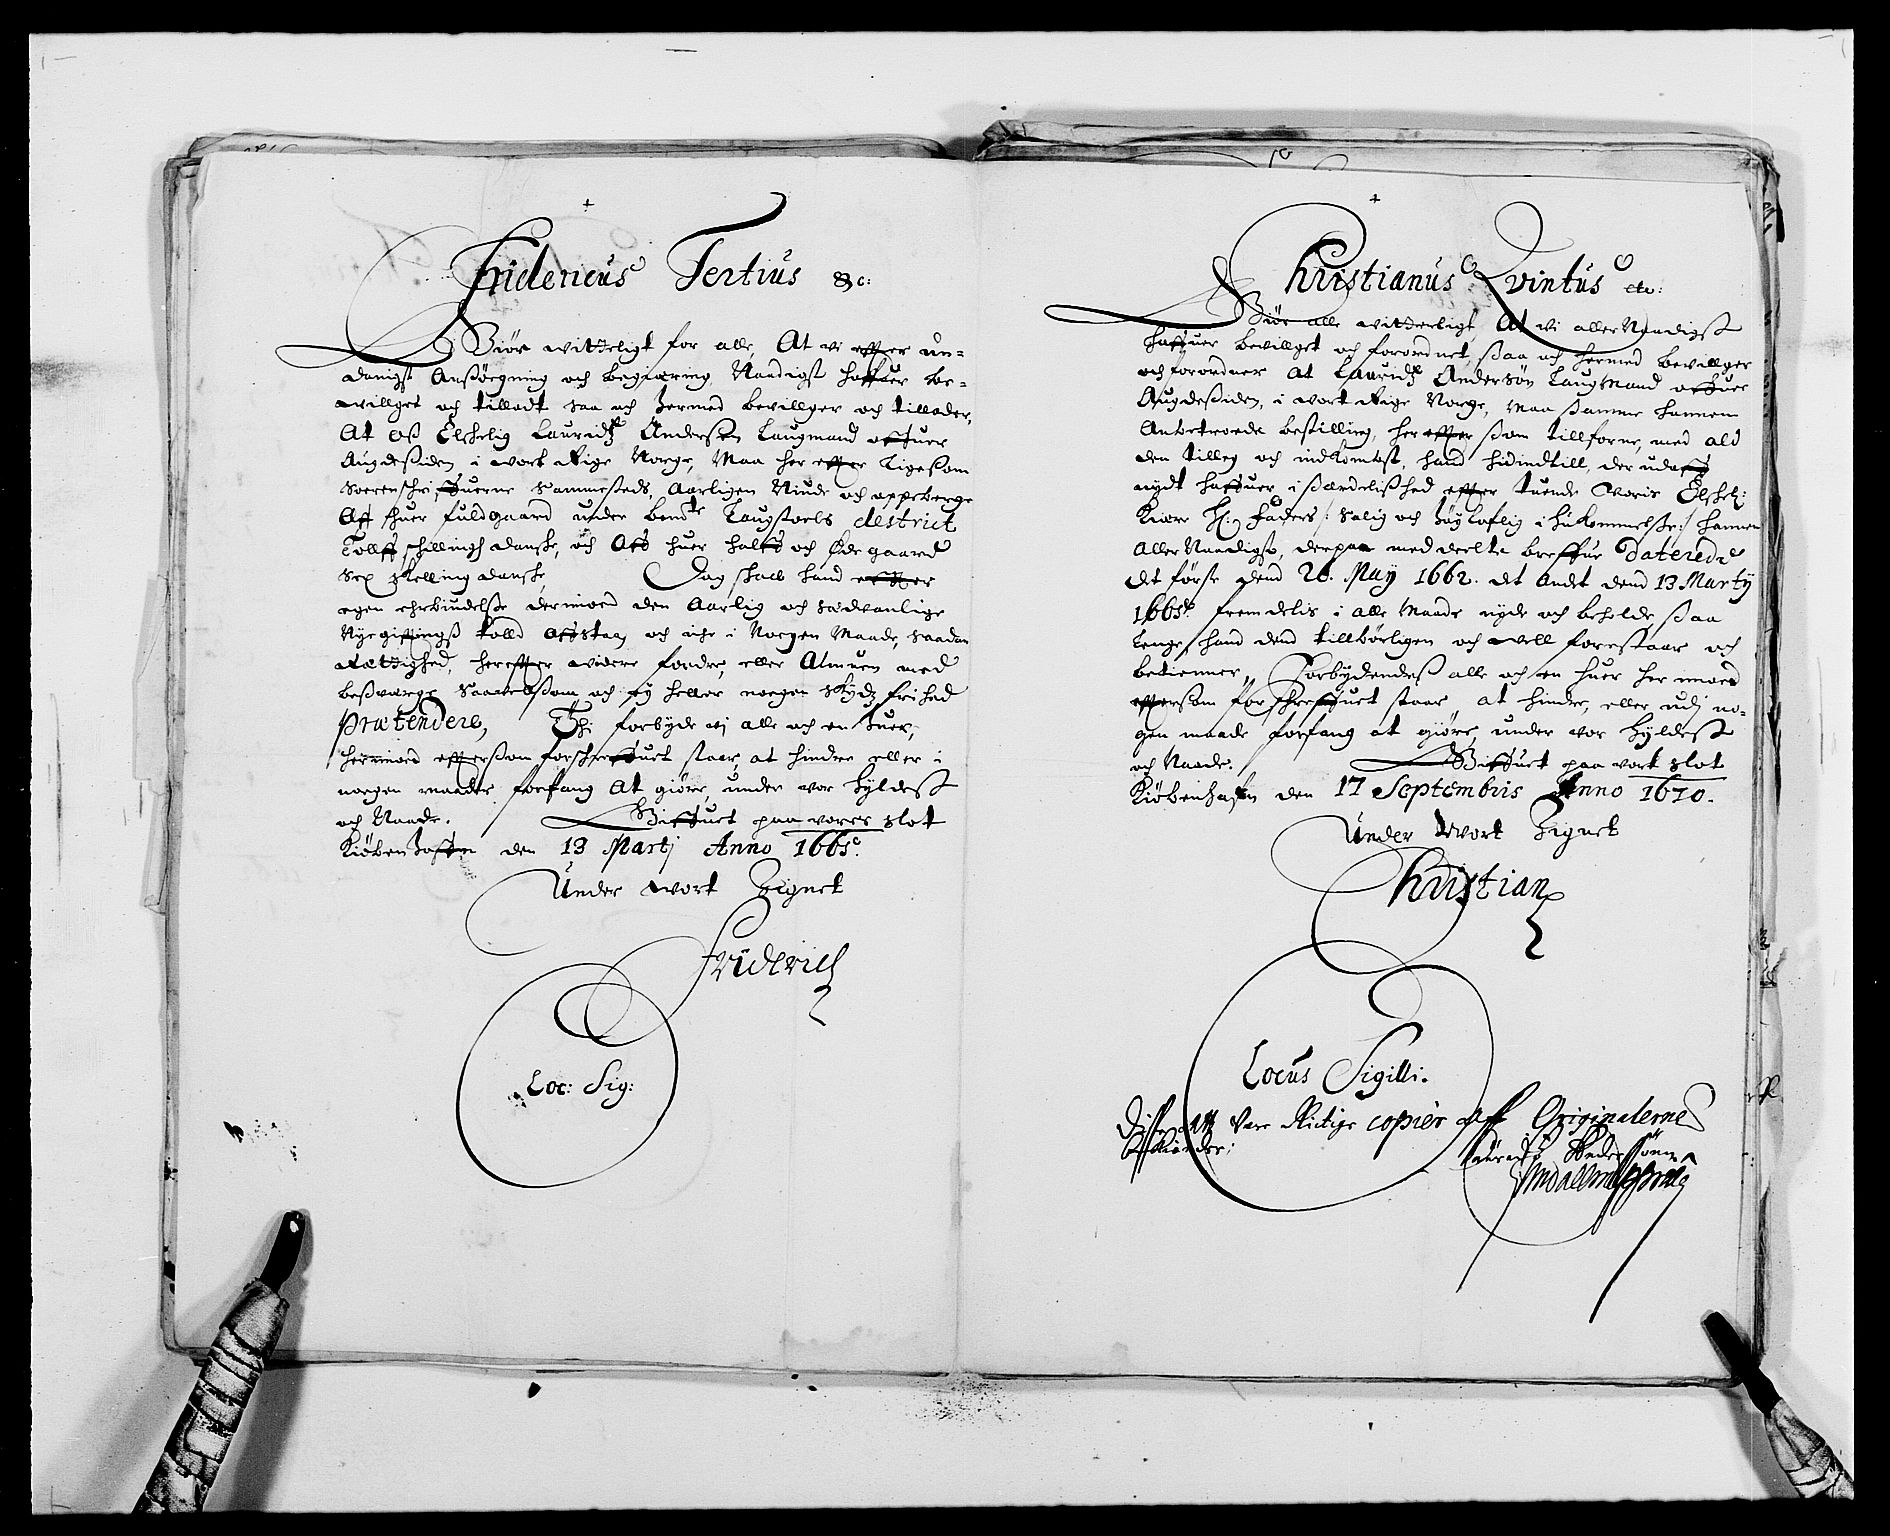 Fridericus Tertius &c:
Giøre witterligt for alle, At vi effter un-
danigst Ansøgning och begiæring, Naadigst haffuer be-
willget och tilladt saa och hermed bevillger och tillader,
At Oß Elschelig Lauridz Andersen Laugmand offuer
Augdesiden i wort Rige Norge, Maa her effter ligesom
Sorenschriffuerne sammesteds, Aarligen Niude och oppeberge
Aff huer fuldgaard under bemte Laugstoels destrict
Tolff schilling danske, och Aff huer halff och Øde gaard
Sex skelling danske, Dog skall hand effter
egen erbiudelse derimod den Aarlig och sædvanlige
Nye giftingß Told affstaa, och icke i Nogen Maade, saadan
Rettighed, hereffter videre fordre, eller Almuen med
besværge saavelsom och ey heller nogen Skydz frihed
Prætendere, Thi forbyde vi alle och en huer,
herimod effterßom forschreffuet staar, at hindre eller i
nogen maade forfang At giøre, under vor Hyldest
och Naade. Schriffuet paa vores slot
Kiøbenhaffn den 13 Martj Anno 1665.
Under wort Zignet
Friderich
Loc: Sig:
Christianus Qvintus etc:
Giør alle witterligt, At vi aller Naadigst
haffuer bevillget och forordnet, saa och hermed bevillger
och forordner at Lauridz Andersøn Laugmand offuer
Augdesiden, i wort Rige Norge, Maa samme hannem
Anbetroede bestilling, her effter som tillforne, med ald
den tilleg och indkombst, hand hidindtill, der udaff
nydt haffuer, i særdelished effter tuende Voris Elschel:
Kiære Hr: Faders /: Salig och høyloflig i hukommelse :/ hannem
Aller Naadigst, derpaa meddeelte breffue Daterede
det første dend 26. Maÿ 1662. det Andt dend 13 Martÿ
1665. fremdelis i alle Maade nyde och beholde, saa
lenge hand dend tillbørligen och well forestaar och
betienner, Forbydendeß alle och en huer her imod
effterßom forschreffuet staar, at hindre, eller udj no-
gen maade forfang at giøre, under vor Hyldest
och Naade. Schriffuet paa vort slot
Kiøbenhaffn den 17 Septembris Anno 1670.
Under Wort Zignet
Christian
Locus Sigilli.
Disse att Vere Rictige copier aff Originalerne
bekiender: